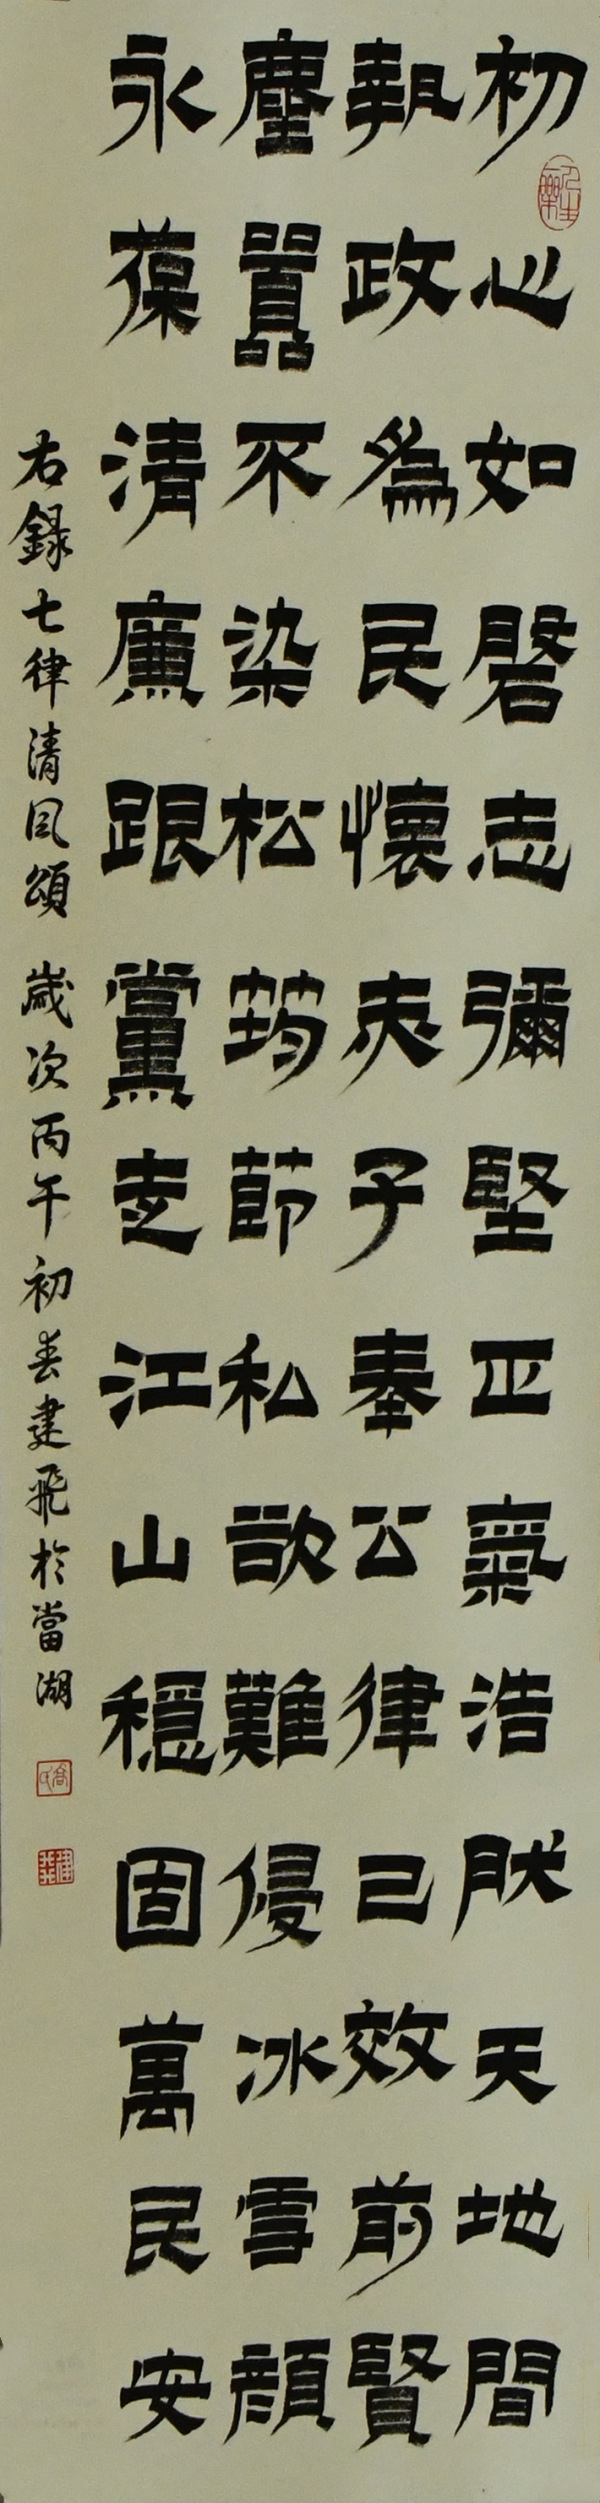 初心如磐志彌堅正氣浩肰天地間
執政爲民懷赤子奉公律己效前賢
塵囂不染松筠節私欲難侵冰雪顏
永葆清廉跟黨走江山穩固萬民安
右錄七律清風頌 歲次丙午初春建飛於當湖